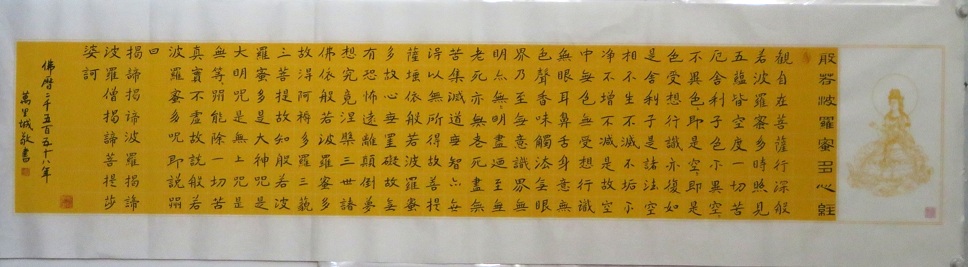 般若波羅蜜多心經
觀自在菩薩行深般
若波羅蜜多時照見
五蘊皆空度一切苦
厄舍利子色不異空空
不異色色即是空空即是
色受想行識亦復如
是舍利子是諸法空
相不生不滅不垢不
淨不增不減是故空
中無色無受想行識
無眼耳鼻舌身意無
色聲香味觸法無眼
界乃至無意識界無無
明亦無無明盡迺至無
老死亦無老死盡無
苦集滅道無智亦無
得以無所得故菩提
薩埵依般若波羅蜜
多故心無罣礙故無
有恐怖遠離顛倒夢
想究竟涅槃三世諸
佛依般若波羅蜜多
故得阿耨多羅三藐
三菩提故知般若波
羅蜜多是大神咒是
大明咒是無上咒是
無等等咒能除一切苦
真實不虛故說般若
波羅蜜多呪即說呪
曰
揭諦揭諦波羅揭諦
波羅僧揭諦菩提莎
婆訶
佛曆二千五百五十六年
萬里城敬書